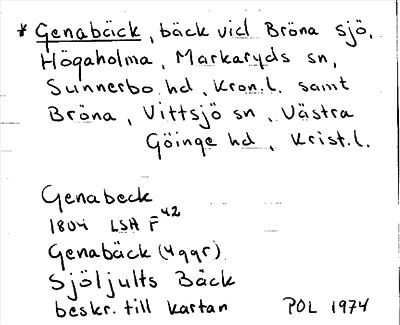 * Genabäck, bäck vid Bröna sjö,
Högaholma, Markaryds sn,
Sunnerbo hd, Kron.l. samt
Bröna, Vittsjö sn, Västra
Göinge hd, Krist.l.
Genabeck
1804 LSA F42
Genabäck (4 ggr)
Sjöljults Bäck
beskr. till kartan POL 1974